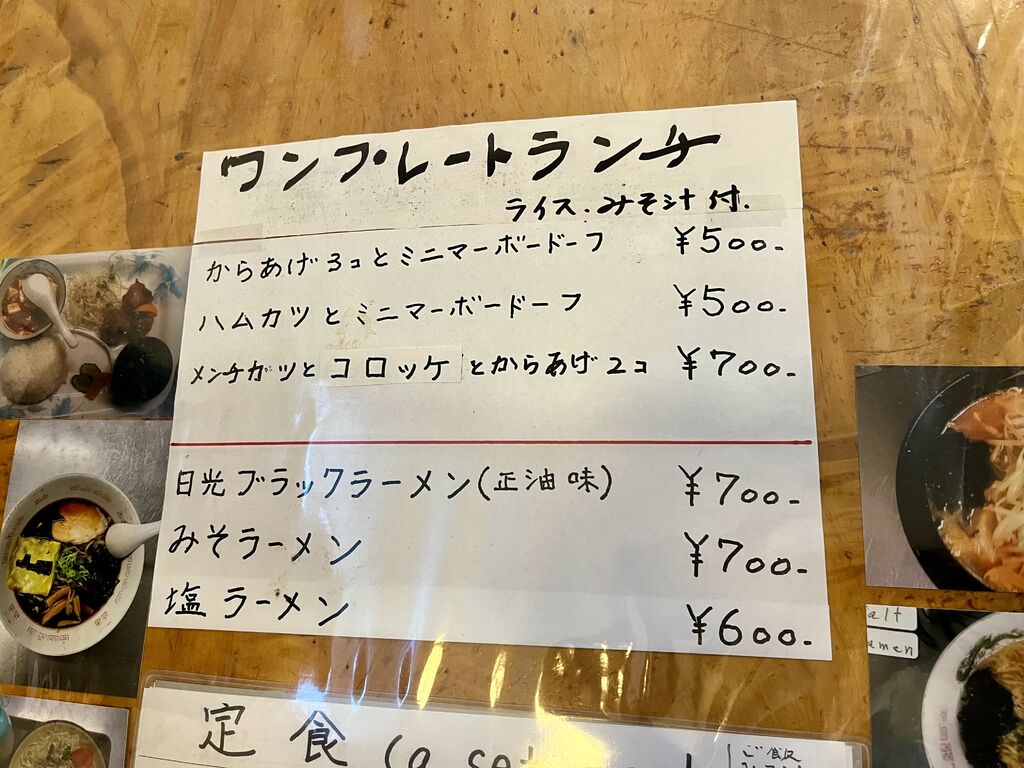 ワンプレートランチ
ライス・みそ汁付.
からあげ3コとミニマーボードーフ ¥500-
ハムカツとミニマーボードーフ ¥500-
メンチカツとコロッケとからあげ2コ ¥700-
日光ブラックラーメン(正油味) ¥700-
みそラーメン ¥700-
塩ラーメン ¥600-
alt
amen
定食 (a set
ご飯